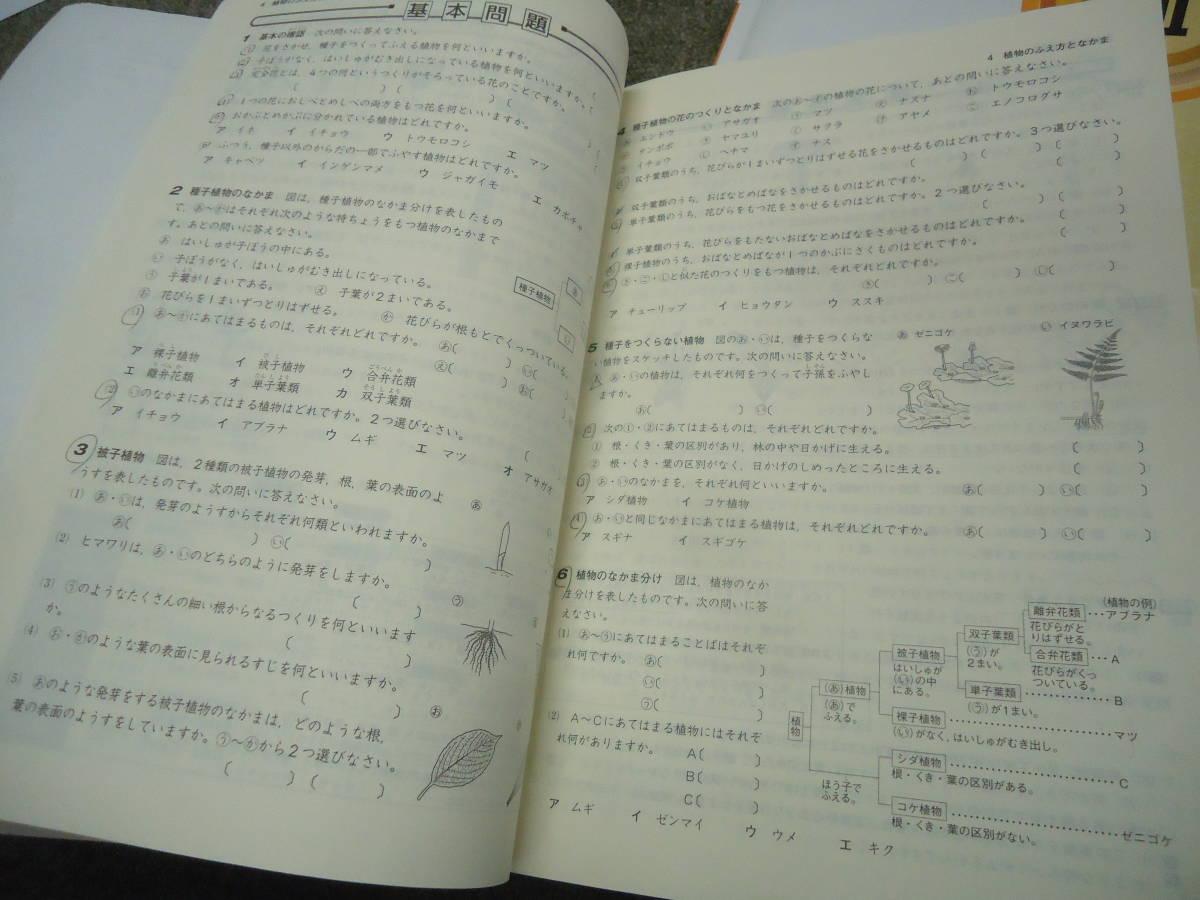 基本問題
1 基本の確認 次の問いに答えなさい。
(1) 花をさかせ、種子をつくってふえる植物を何といいますか。
(2) 子ぼうがなく、はいしゅがむき出しになっている植物を何といいますか。
(3) 完全花とは、4つの何というつくりがそろっている花のことですか。
(4) 1つの花におしべとめしべの両方をもつ花を何といいますか。
(5) おかぶとめかぶに分かれている植物はどれですか。
ア イネ イ イチョウ ウ トウモロコシ エ マツ
(6) ふつう、種子以外のからだの一部でふやす植物はどれですか。
ア キャベツ イ インゲンマメ ウ ジャガイモ エ カボチャ
2 種子植物のなかま 図は、種子植物のなかま分けを表したもの
で、あ〜かはそれぞれ次のような特ちょうをもつ植物のなかまで
す。あとの問いに答えなさい。
あ はいしゅが子ぼうの中にある。
い 子ぼうがなく、はいしゅがむき出しになっている。
う 子葉が1まいである。 え 子葉が2まいである。
お 花びらを1まいずつとりはずせる。 か 花びらが根もとでくっついている。
種子植物
あ
い
(1) あ〜かにあてはまるものは、それぞれどれですか。 あ( ) い(
え( ) お(
ア 裸子植物 イ 被子植物 ウ 合弁花類
エ 離弁花類 オ 単子葉類 カ 双子葉類
(2) いのなかまにあてはまる植物はどれですか。2つ選びなさい。
ア イチョウ イ アブラナ ウ ムギ エ マツ オ アサガオ
3 被子植物 図は、2種類の被子植物の発芽、根、葉の表面のよ
うすを表したものです。次の問いに答えなさい。
(1) あ・いは、発芽のようすからそれぞれ何類といわれますか。
あ( ) い( )
(2) ヒマワリは、あ・いのどちらのように発芽をしますか。
( )
(3) うのようなたくさんの細い根からなるつくりを何といいます
か。 ( )
(4) お・かのような葉の表面に見られるすじを何といいますか。
( )
(5) あのような発芽をする被子植物のなかまは、どのような根、
葉の表面のようすをしていますか。う〜かから2つ選びなさい。
( ) ( )
あ
う
お
4 植物のふえ方となかま
4 種子植物の花のつくりとなかま 次のあ〜その植物の花について、あとの問いに答えなさい。
エンドウ アサガオ マツ ナズナ トウモロコシ
タンポポ ヤマユリ サクラ アヤメ エノコログサ
イチョウ ヘチマ ナス
双子葉類のうち、花びらが1まいずつとりはずせる花をさかせるものはどれですか。3つ選びなさい。
双子葉類のうち、おばなとめばなをさかせるものはどれですか。
単子葉類のうち、花びらをもつ花をさかせるものはどれですか。2つ選びなさい。
単子葉類のうち、花びらをもたないおばなとめばなをさかせるものはどれですか。
裸子植物のうち、おばなとめばなが1つのかぶにさくものはどれですか。
き・こ・しと似た花のつくりをもつ植物は、それぞれどれですか。
き( ) こ( ) し( )
ア チューリップ イ ヒョウタン ウ ススキ
5 種子をつくらない植物 図のあ・いは、種子をつくらな
い植物をスケッチしたものです。次の問いに答えなさい。
あ ゼニゴケ い イヌワラビ
あ・いの植物は、それぞれ何をつくって子孫をふやし
ますか。
あ( ) い( )
(2) 次の①・②にあてはまるものは、それぞれどれですか。
① 根・くき・葉の区別があり、林の中や日かげに生える。 ( )
② 根・くき・葉の区別がなく、日かげのしめったところに生える。 ( )
(3) あ・いのなかまを、それぞれ何といいますか。 あ( ) い( )
ア シダ植物 イ コケ植物
(4) あ・いと同じなかまにあてはまる植物は、それぞれどれですか。 あ( ) い( )
ア スギナ イ スギゴケ
6 植物のなかま分け 図は、植物のなか
ま分けを表したものです。次の問いに答
えなさい。
(1) あ〜うにあてはまることばはそれぞ
れ何ですか。 あ( )
い( )
う( )
(2) A〜Cにあてはまる植物にはそれぞ
れ何がありますか。 A( )
B( )
C( )
ア ムギ イ ゼンマイ ウ ウメ エ キク
(植物の例)
植物
(あ)植物
(あ)で
ふえる。
ほう子で
ふえる。
被子植物
はいしゅが
(い)の中
にある。
双子葉類
(う)が
2まい。
離弁花類…アブラナ
花びらがと
りはずせる。
合弁花類…A
花びらがくっ
ついている。
単子葉類…B
(う)が1まい。
裸子植物…マツ
(い)がなく、はいしゅがむき出し。
シダ植物…C
根・くき・葉の区別がある。
コケ植物…ゼニゴケ
根・くき・葉の区別がない。